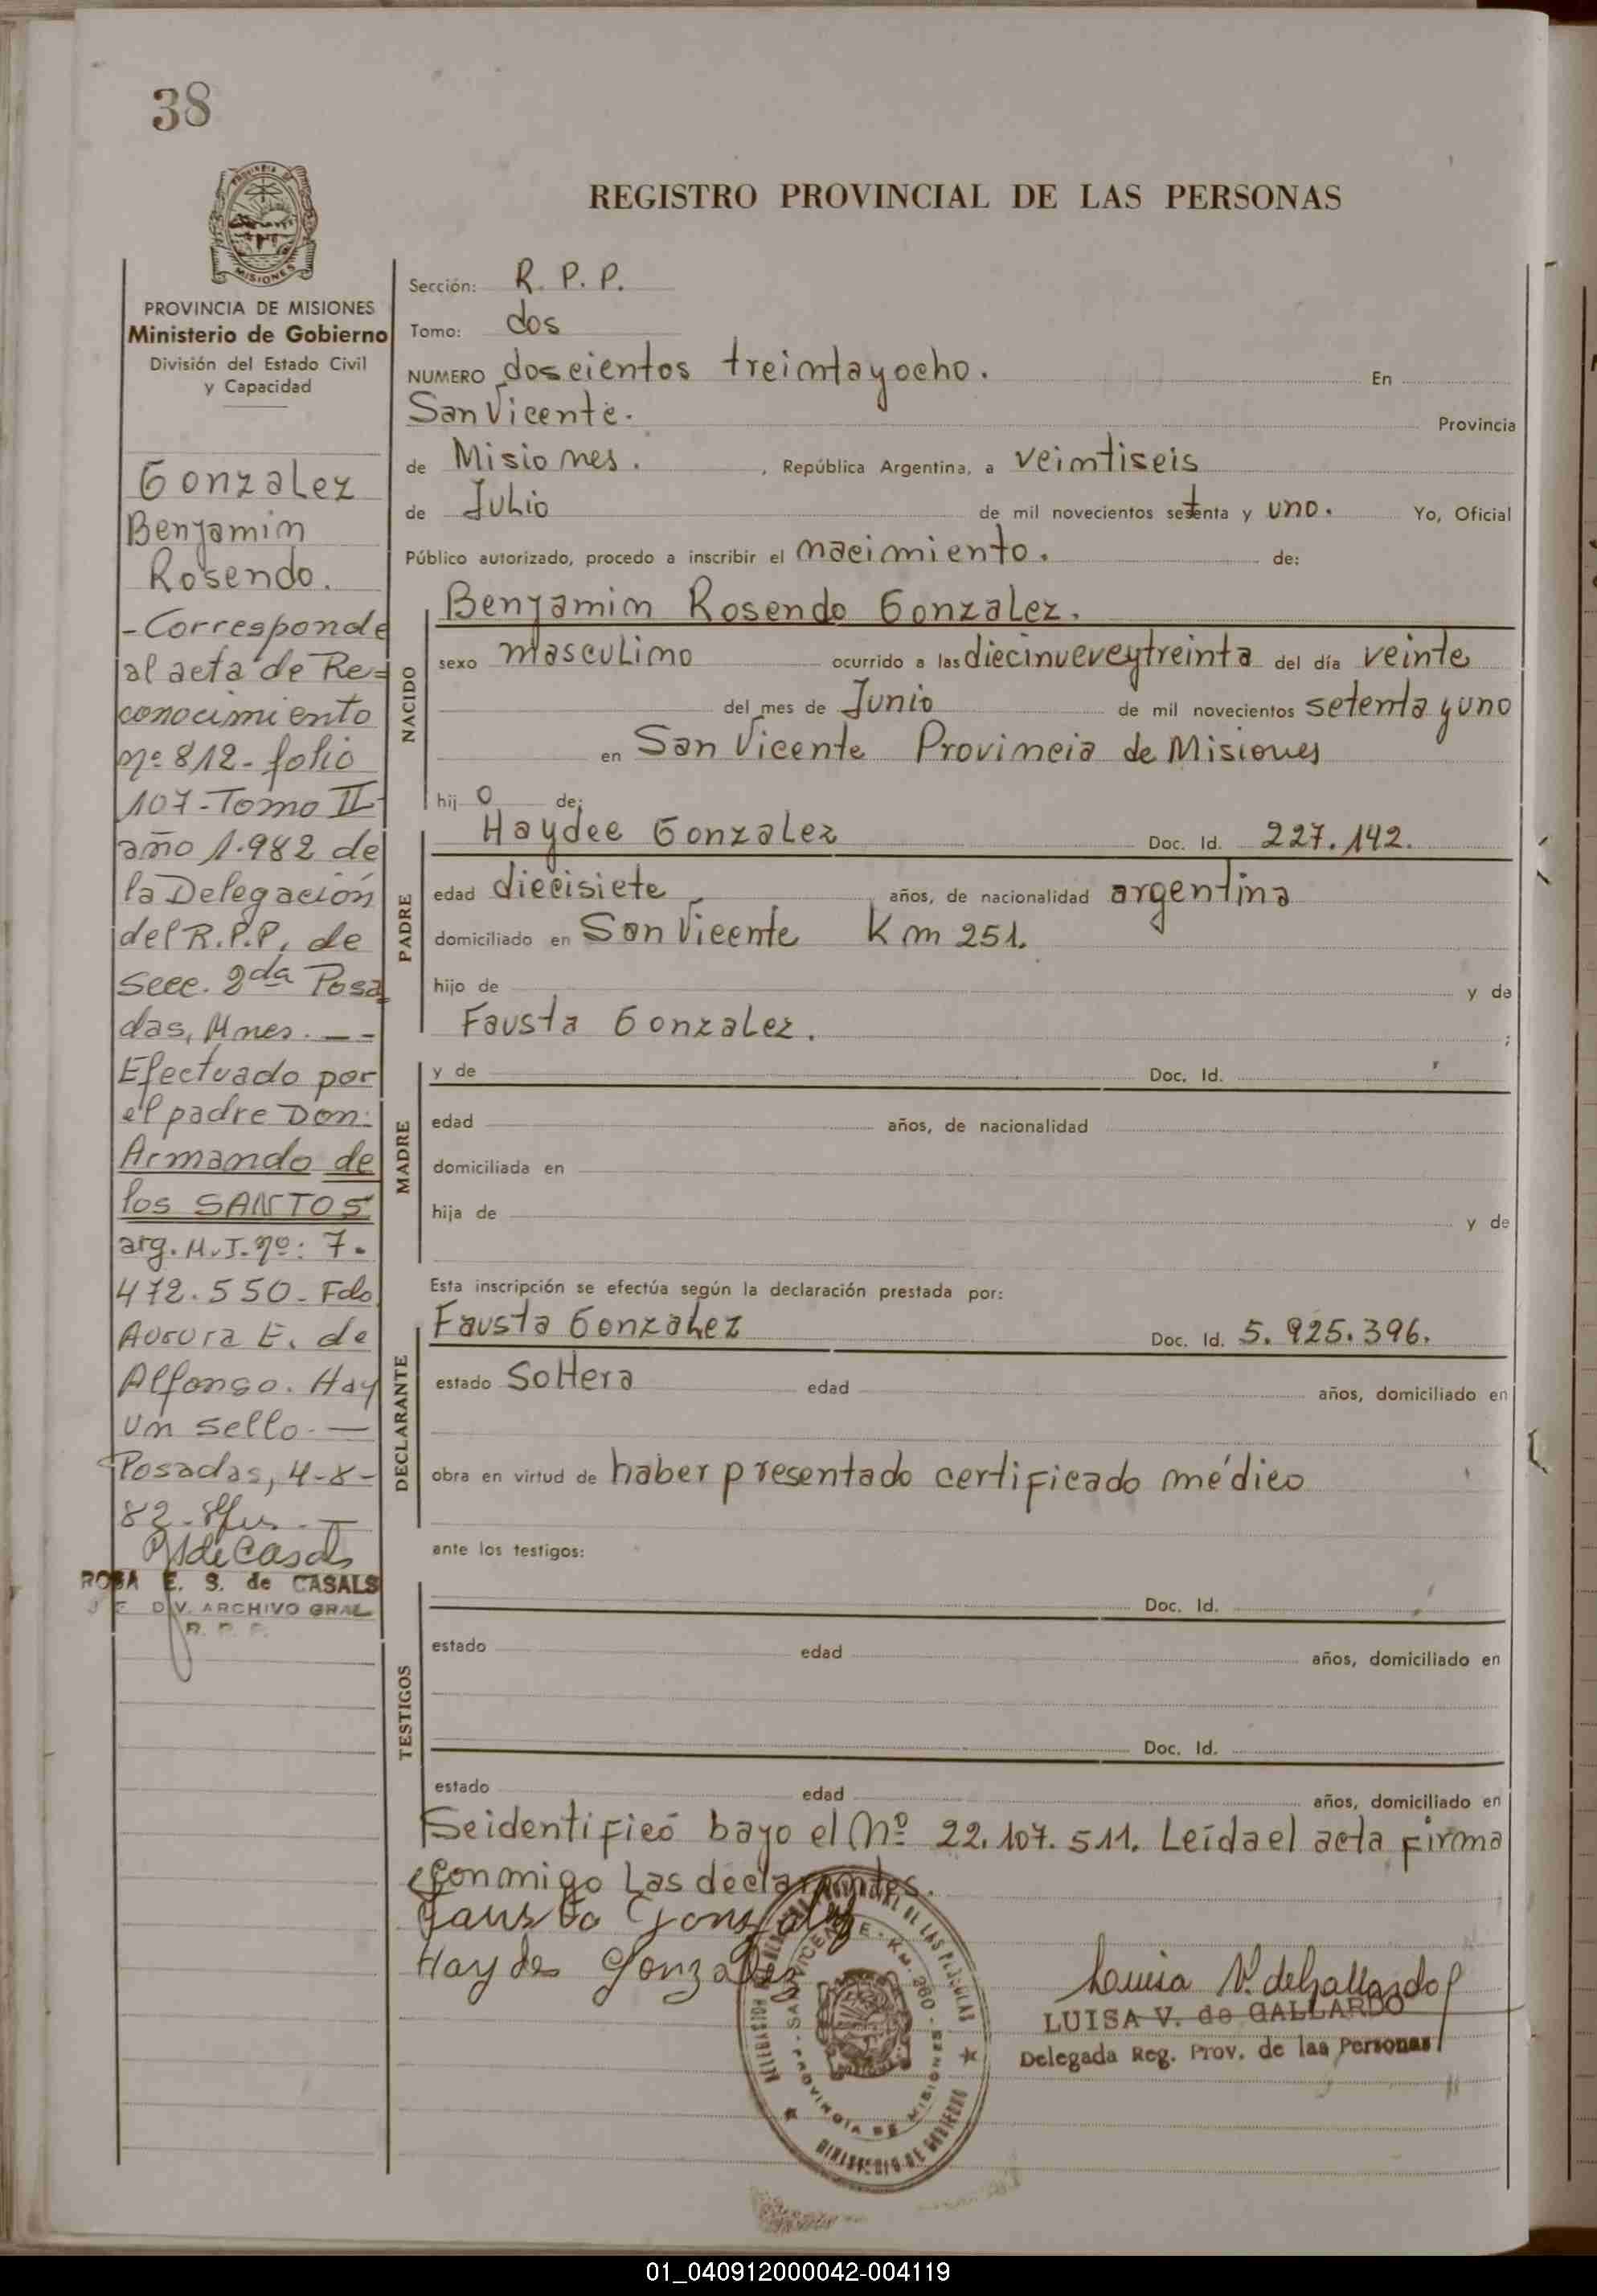 38
PROVINCIA DE
MISIONES
PROVINCIA DE MISIONES
Ministerio de Gobierno
División del Estado Civil
y Capacidad
Gonzalez
Benjamin
Rosendo.
- Corresponde
al acta de Re=
conocimiento
nº 812 - folio
107 - Tomo II -
año 1.982 de
la Delegación
del R.P.P. de
Secc. 2da Posa
das, Mnes. — -
Efectuado por
el padre Don:
Armando de
los SANTOS
arg. M.I. nº: 7.
472.550 - Fdo
Aurora E. de
Alfonso. Hay
un sello. —
Posadas, 4-8-
82.
ROSA E. S. de CASALS
DIV. ARCHIVO GRAL
R. P. P.
REGISTRO PROVINCIAL DE LAS PERSONAS
Sección: R. P. P.
Tomo: dos
NUMERO doscientos treinta y ocho. En
San Vicente. Provincia
de Misiones. , República Argentina, a veintiseis
de Julio de mil novecientos setenta y uno. Yo, Oficial
Público autorizado, procedo a inscribir el nacimiento. de:
NACIDO
Benjamin Rosendo Gonzalez.
sexo masculino ocurrido a las diecinueve y treinta del día veinte
del mes de Junio de mil novecientos setenta y uno
en San Vicente Provincia de Misiones
hij o de:
PADRE
Haydee Gonzalez Doc. Id. 227.142.
edad diecisiete años, de nacionalidad argentina
domiciliado en San Vicente Km 251.
hijo de y de
Fausta Gonzalez. ;
MADRE
y de Doc. Id.
edad años, de nacionalidad
domiciliada en
hija de y de
Esta inscripción se efectúa según la declaración prestada por:
DECLARANTE
Fausta Gonzalez Doc. Id. 5.925.396.
estado Soltera edad años, domiciliado en
obra en virtud de haber presentado certificado médico
ante los testigos:
TESTIGOS
Doc. Id.
estado edad años, domiciliado en
Doc. Id.
estado edad años, domiciliado en
Se identificó bajo el Nº 22.107.511. Leída el acta firma
conmigo Las declarantes.
Fausta Gonzalez
Hayde Gonzalez
PROVINCIAL DE LAS PERSONAS
SAN VICENTE - KM. 260 - PROVINCIA DE MISIONES
MINISTERIO DE GOBIERNO
Luisa V. de Gallardo
LUISA V. de GALLARDO
Delegada Reg. Prov. de las Personas
01_040912000042-004119